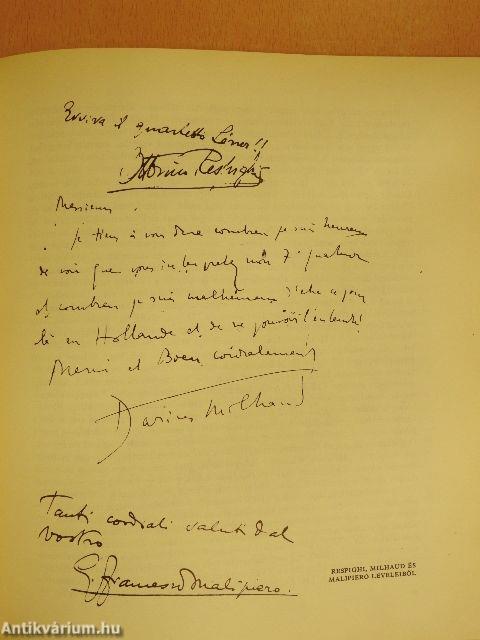 Evviva il quartetto Léner!!
Ottorino Respighi
Messieurs,
Je tiens à vous dire combien je suis heureux
de voir que vous interpretez mon 7e quatuor
et combien je suis malheureux d'etre ce jour
là en Hollande et de ne pouvoir l'entendre!
Merci et Bien cordialement
Darius Milhaud
Tanti cordiali saluti dal
vostro
G. Francesco Malipiero.
RESPIGHI, MILHAUD ÉS
MALIPIERO LEVELEIBŐL.
Antikvárium.hu